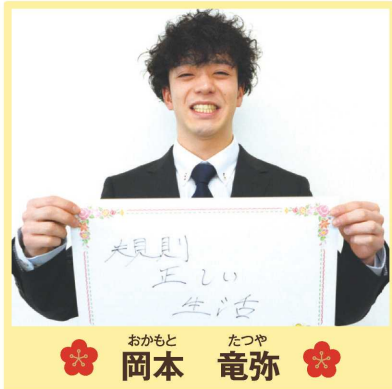 規則
正しい
生活
おかもと たつや
岡本 竜弥